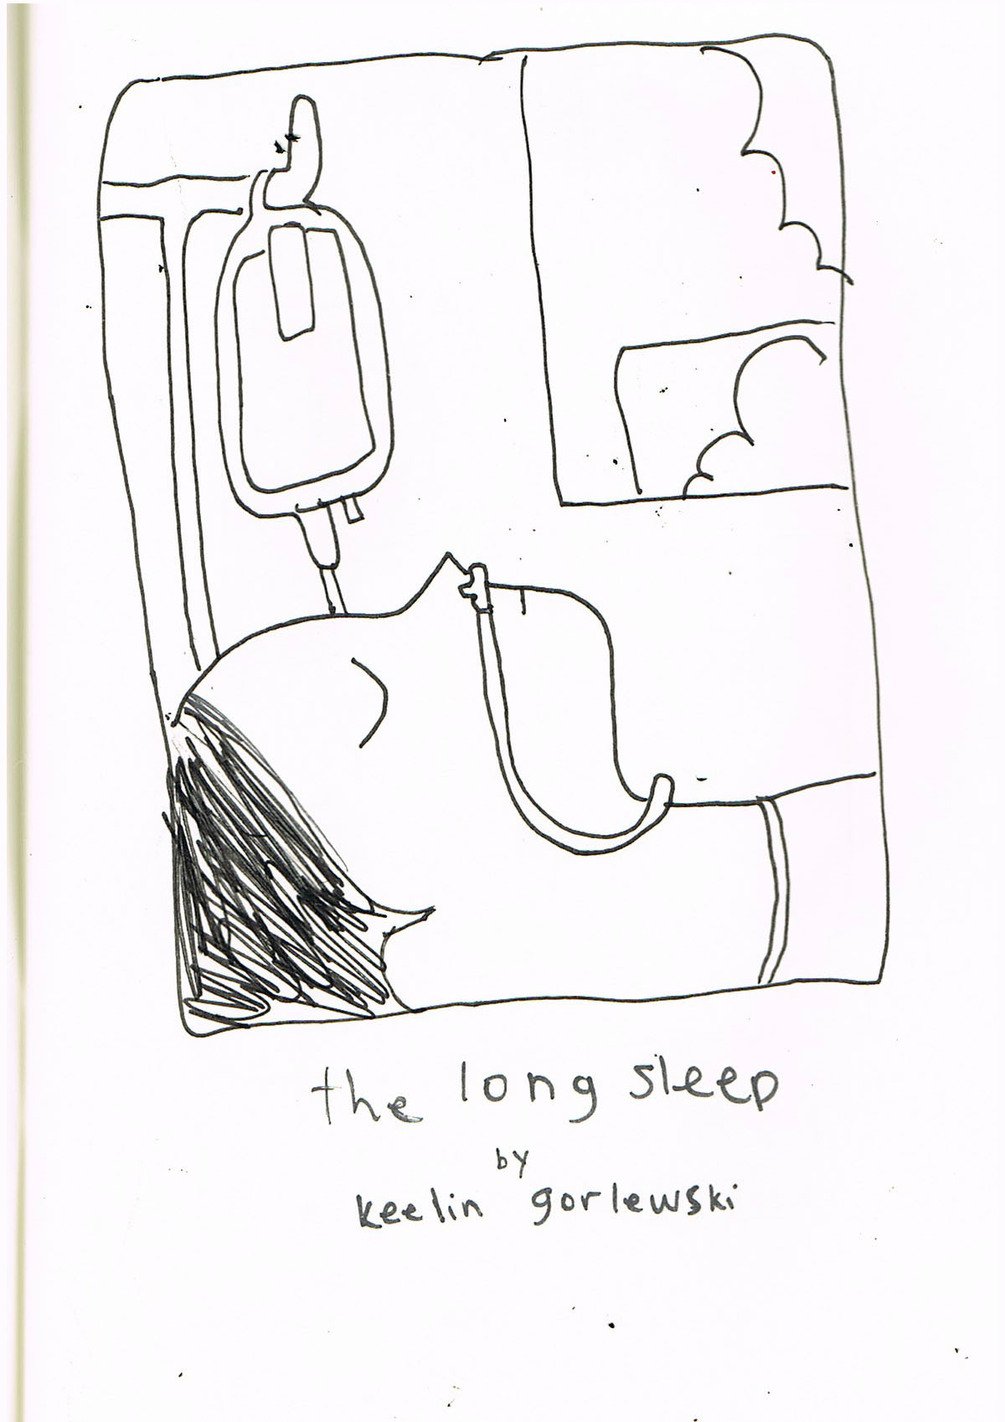 the long sleep
by
keelin gorlewski